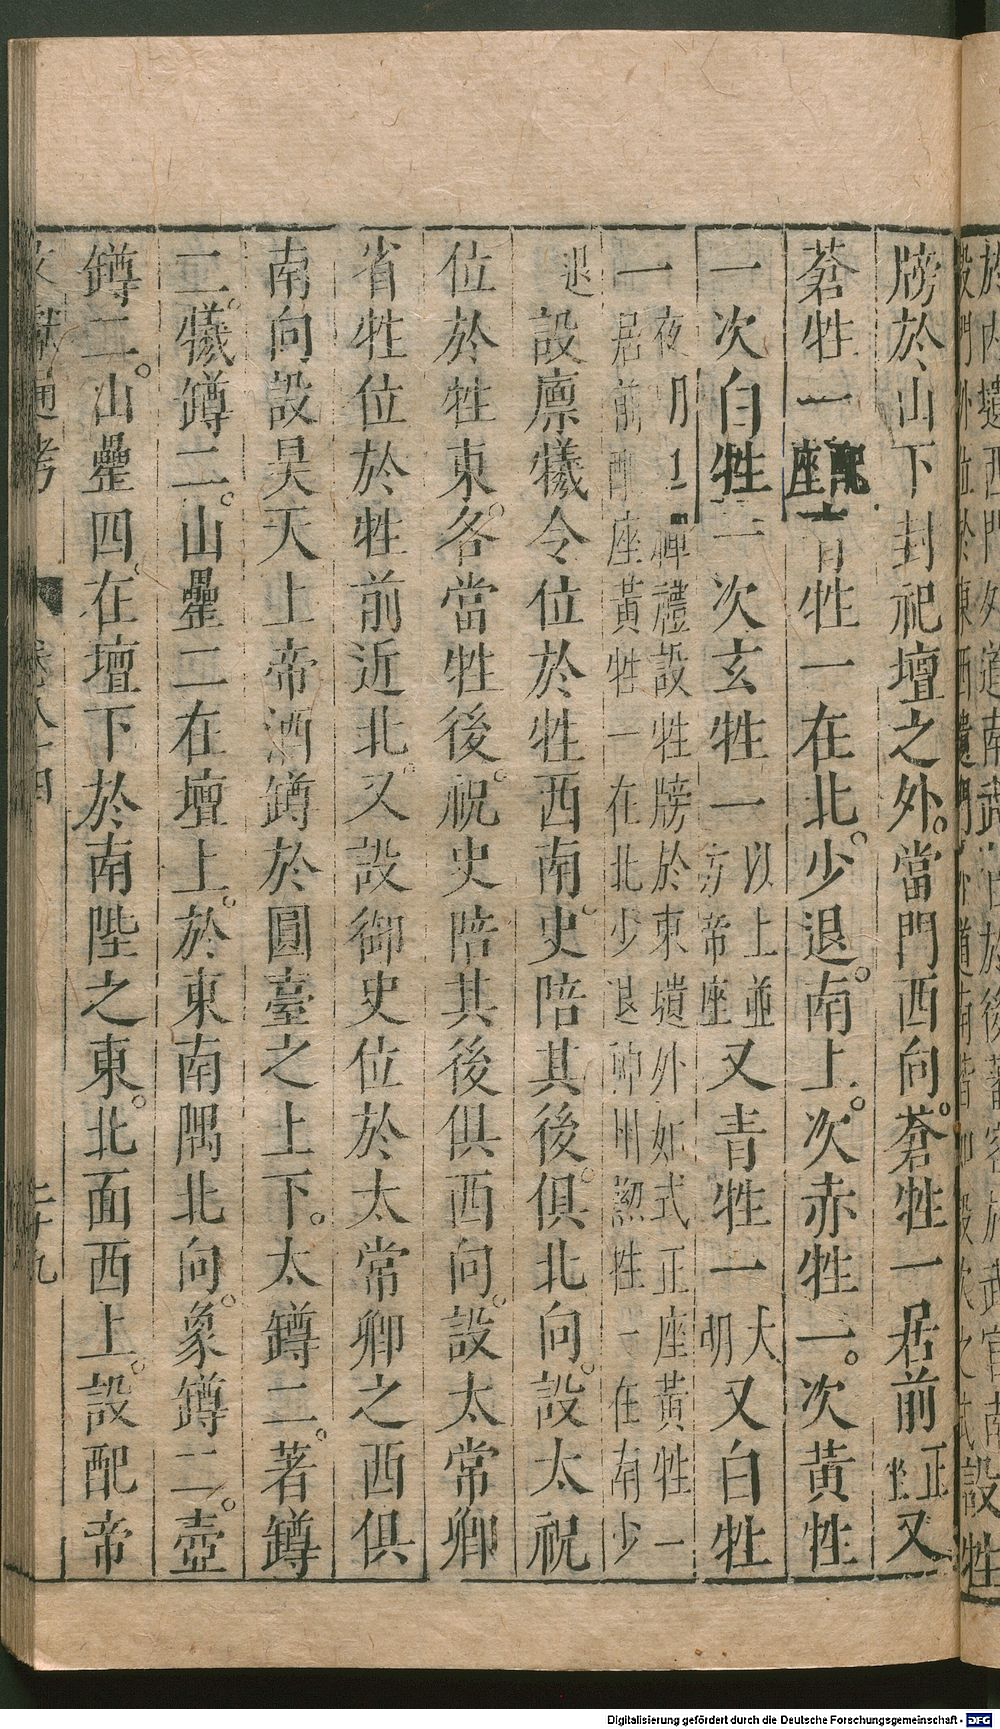 牓於山下封祀壇之外當門西向蒼牲一居前正座又
蒼牲一配座青牲一在北少退南上次赤牲一次黃牲
一次白牲一次玄牲一以上並方帝座又青牲一大明又白牲
一夜明禪禮設牲牓於東壝外如式正座黃牲一
居前配座黃牲一在北少退神州黝牲一在南少
退設廩犧令位於牲西南史陪其後俱北向設太祝
位於牲東各當牲後祝史陪其後俱西向設太常卿
省牲位於牲前近北又設御史位於太常卿之西俱
南向設昊天上帝酒罇於圓臺之上下太罇二著罇
二犧罇二山罍二在壇上於東南隅北向象罇二壺
罇二山罍四在壇下於南陛之東北面西上設配帝
文獻通考 卷八十四 二十九
Digitalisierung gefördert durch die Deutsche Forschungsgemeinschaft - DFG